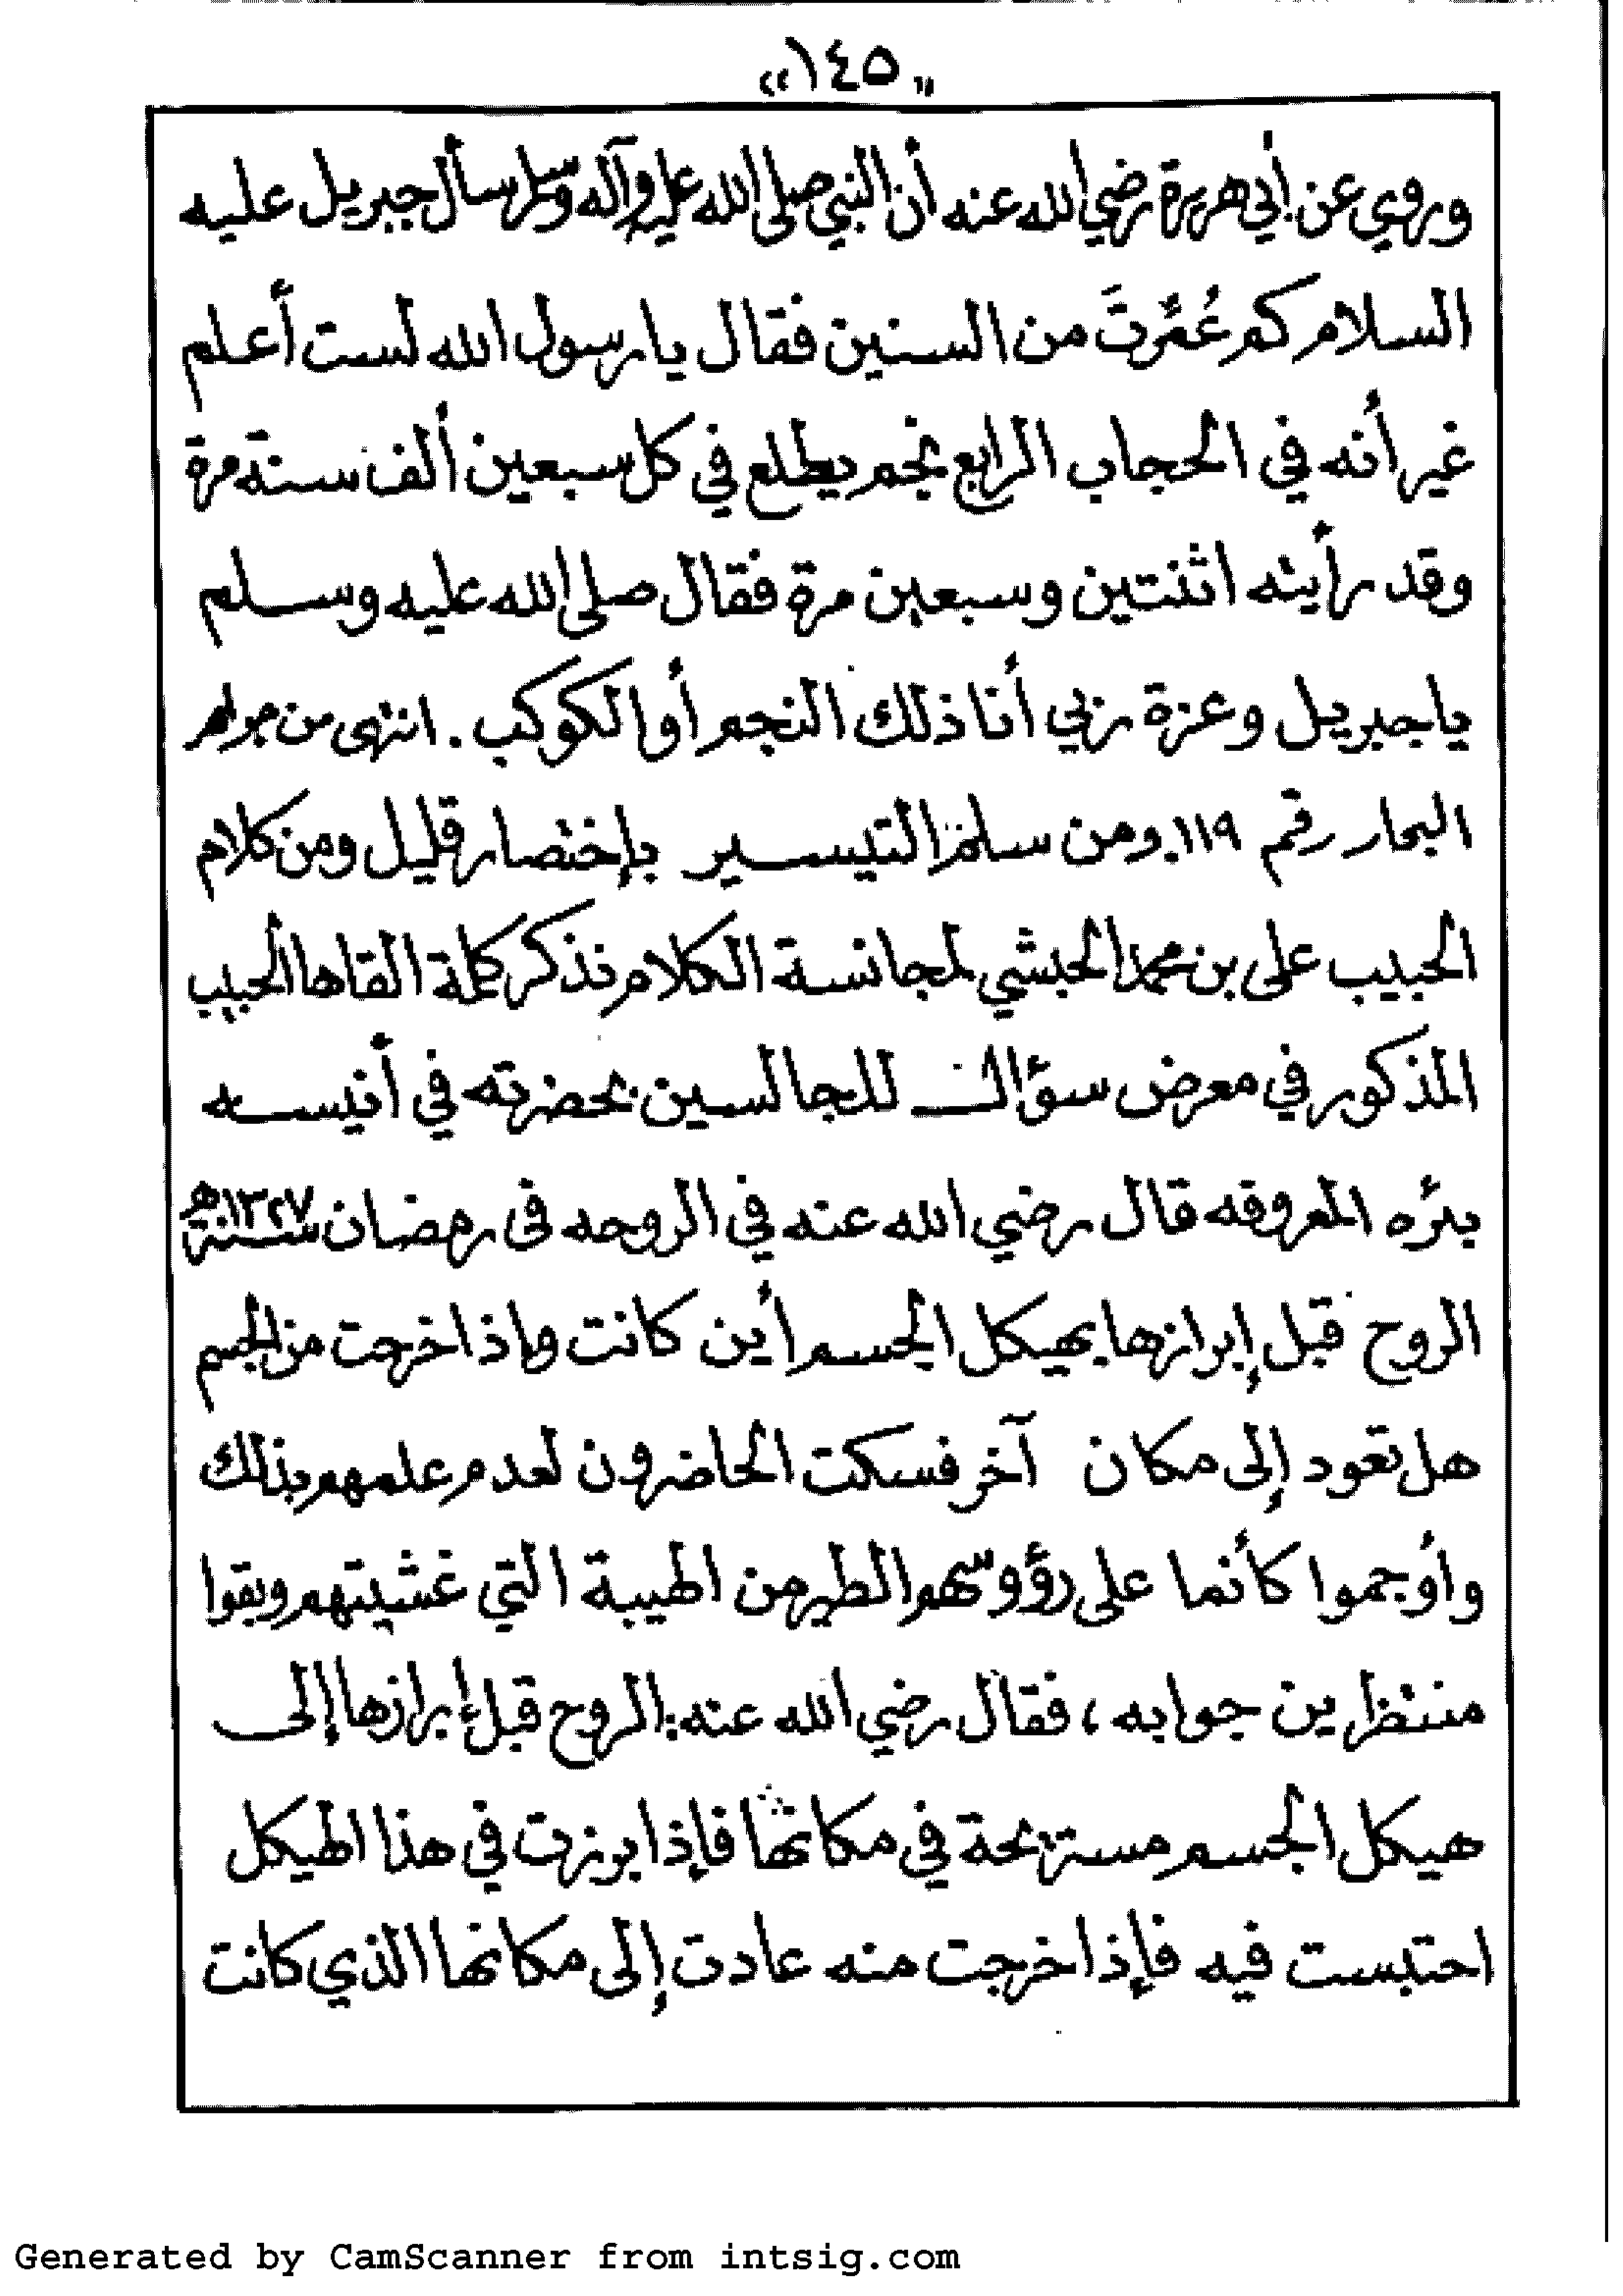 "١٤٥"
وروي عن أبي هريرة رضي الله عنه أن النبي صلى الله عليه وآله وسلم سأل جبريل عليه
السلام كم عُمِّرتَ من السنين فقال يا رسول الله لست أعلم
غير أنه في الحجاب الرابع نجم يطلع في كل سبعين ألف سنة مرة
وقد رأيته اثنتين وسبعين مرة فقال صلى الله عليه وسلم
يا جبريل وعزة ربي أنا ذلك النجم أو الكوكب . انتهى من جواهر
البحار رقم ١١٩. ومن سلم التيسير بإختصار قليل ومن كلام
الحبيب على بن محمد الحبشي لمجانسة الكلام نذكر كلمة القاها الحبيب
المذكور في معرض سؤال للجالسين بحضرته في أنيسه
بئره المعروفه قال رضي الله عنه في الروحه فى رمضان سنة ١٣٢٧هـ
الروح قبل إبرازها بهيكل الجسم أين كانت وإذا خرجت من الجسم
هل تعود إلى مكان آخر فسكت الحاضرون لعدم علمهم بذلك
وأوجموا كأنما على رؤوسهم الطير من الهيبة التي غشيتهم وبقوا
منتظرين جوابه ، فقال رضي الله عنه : الروح قبل إبرازها إلى
هيكل الجسم مستريحة في مكانها فإذا برزت في هذا الهيكل
احتبست فيه فإذا خرجت منه عادت إلى مكانها الذي كانت
Generated by CamScanner from intsig.com